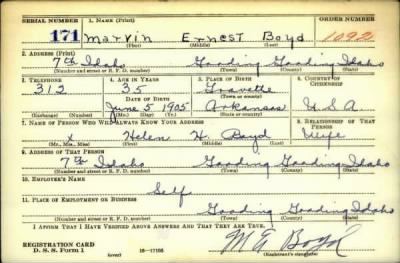 SERIAL NUMBER 1. NAME (Print) ORDER NUMBER
171 Marvin Ernest Boyd 1092
(First) (Middle) (Last)
2. ADDRESS (Print)
7th Idaho Gooding Gooding Idaho
(Number and street or R. F. D. number) (Town) (County) (State)
3. TELEPHONE 4. AGE IN YEARS 5. PLACE OF BIRTH 6. COUNTRY OF CITIZENSHIP
312 35 Gravette
DATE OF BIRTH (Town or county)
June 5 1905 Arkansas U.S.A
(Exchange) (Number) (Mo.) (Day) (Yr.) (State or country)
7. NAME OF PERSON WHO WILL ALWAYS KNOW YOUR ADDRESS 8. RELATIONSHIP OF THAT PERSON
x Helen H. Boyd Wife
(Mr., Mrs., Miss) (First) (Middle) (Last)
9. ADDRESS OF THAT PERSON
7th Idaho Gooding Gooding Idaho
(Number and street or R. F. D. number) (Town) (County) (State)
10. EMPLOYER'S NAME
Self
11. PLACE OF EMPLOYMENT OR BUSINESS
Gooding Gooding Idaho
(Number and street or R. F. D. number) (Town) (County) (State)
I AFFIRM THAT I HAVE VERIFIED ABOVE ANSWERS AND THAT THEY ARE TRUE.
REGISTRATION CARD
D. S. S. Form 1 (over) 16-17105 M E Boyd
(Registrant's signature)